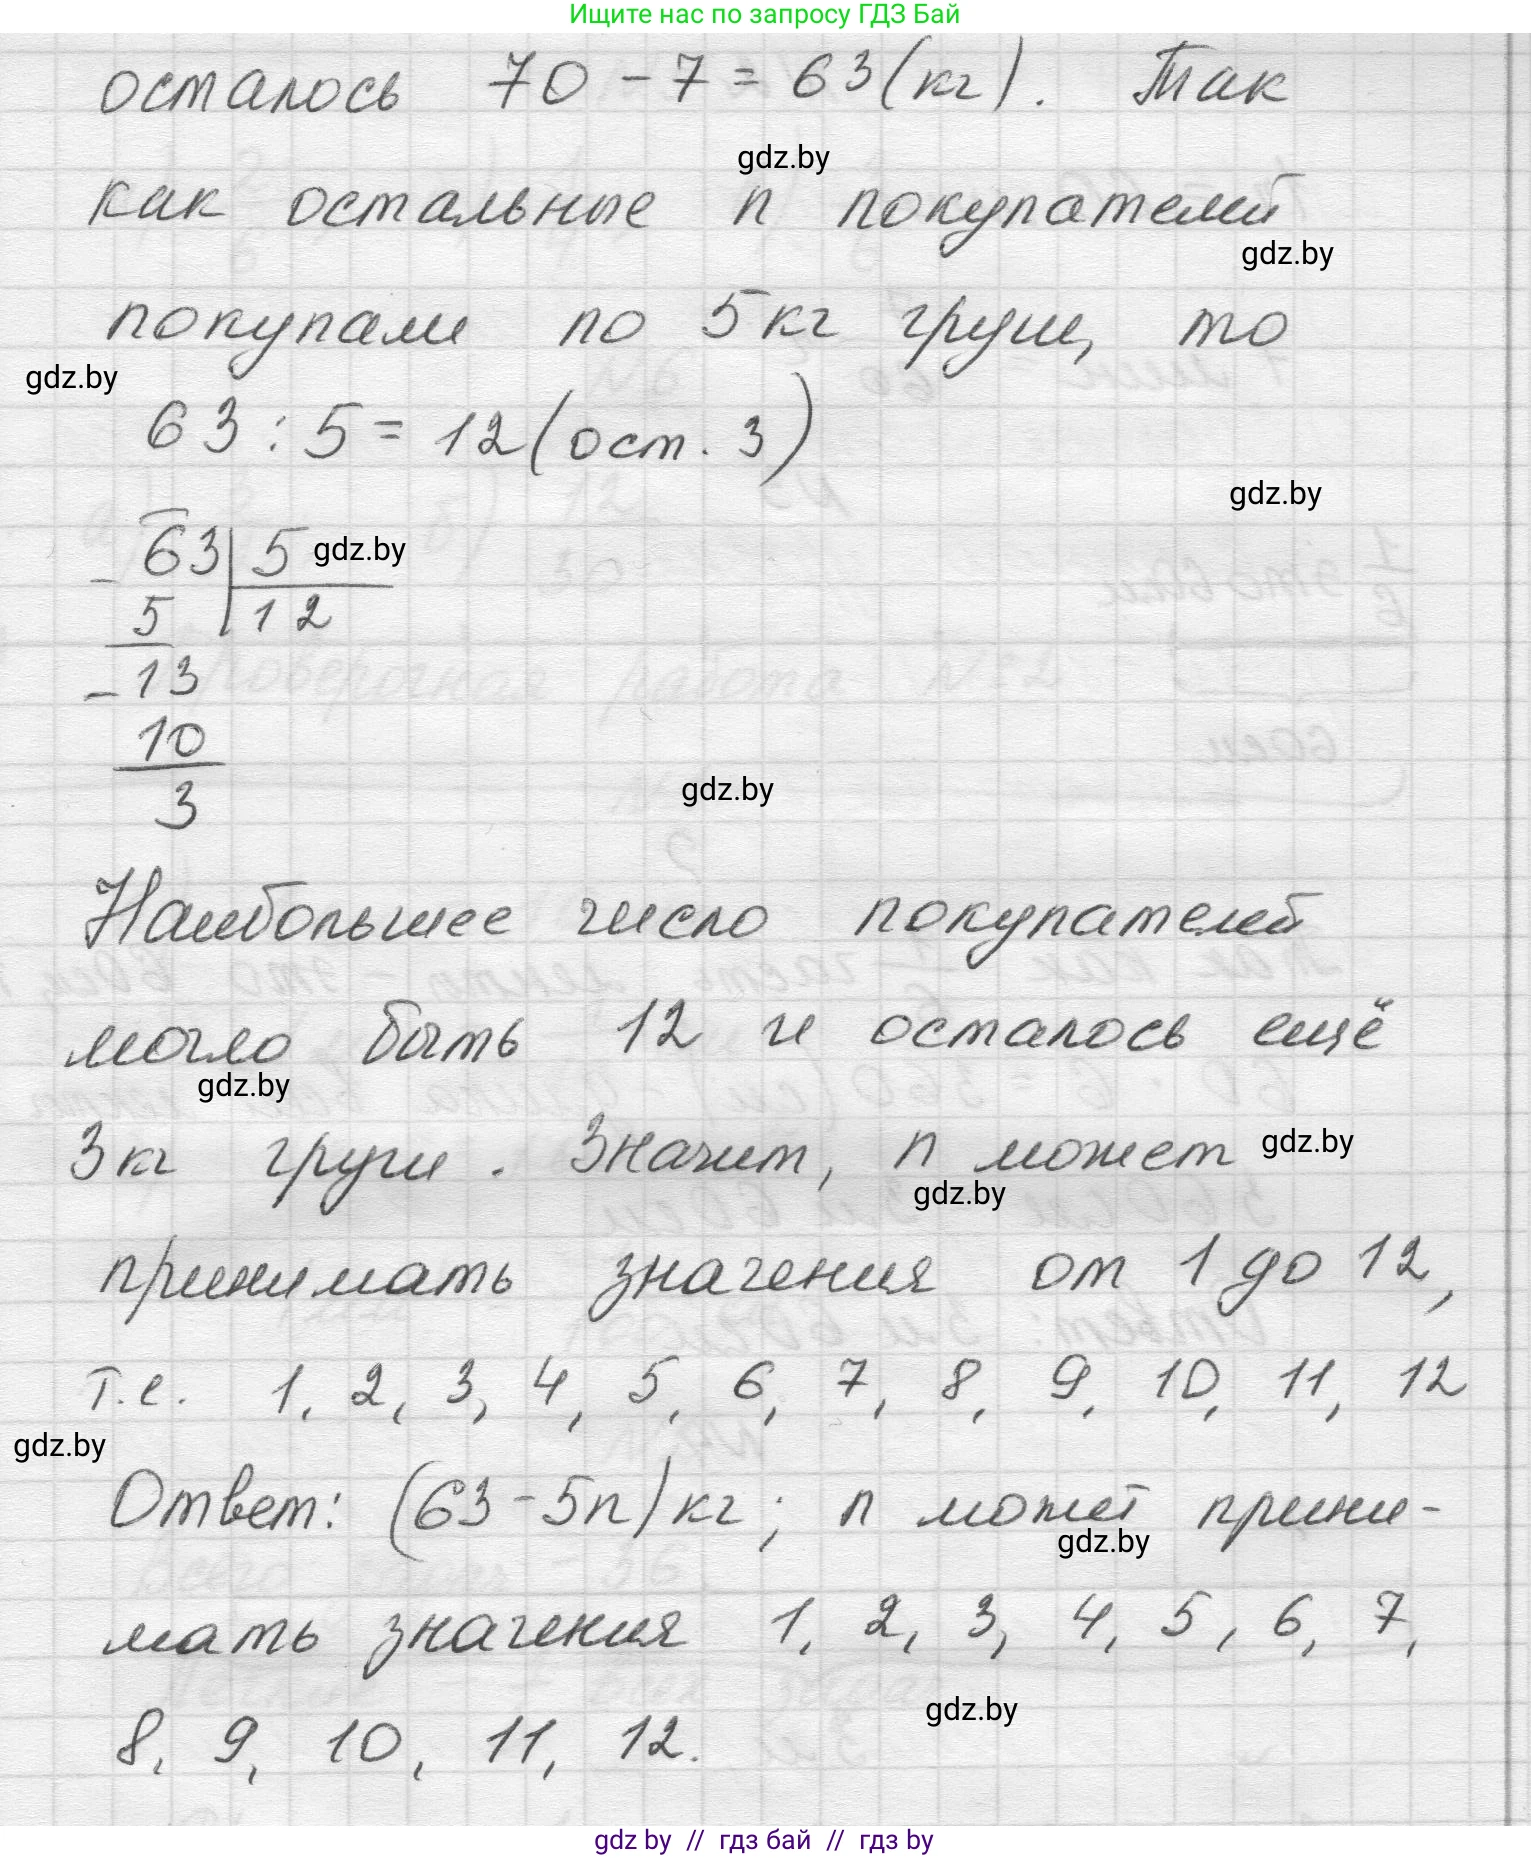 Ищите нас по запросу ГДЗ Бай
осталось 70 - 7 = 63 (кг). Так
gdz.by
как остальные n покупателей
gdz.by
покупали по 5 кг груш, то
gdz.by
63 : 5 = 12 (ост. 3)
gdz.by
- 63 | 5 gdz.by
5 | 12
- 13
10
gdz.by
3
Наибольшее число покупателей
могло быть 12 и осталось ещё
gdz.by
3 кг груш. Значит, n может gdz.by
gdz.by
принимать значения от 1 до 12,
т.е. 1, 2, 3, 4, 5, 6, 7, 8, 9, 10, 11, 12
gdz.by
Ответ: (63 - 5n) кг; n может прини-
gdz.by
мать значения 1, 2, 3, 4, 5, 6, 7,
gdz.by
8, 9, 10, 11, 12.
gdz by // гдз бай // гдз by